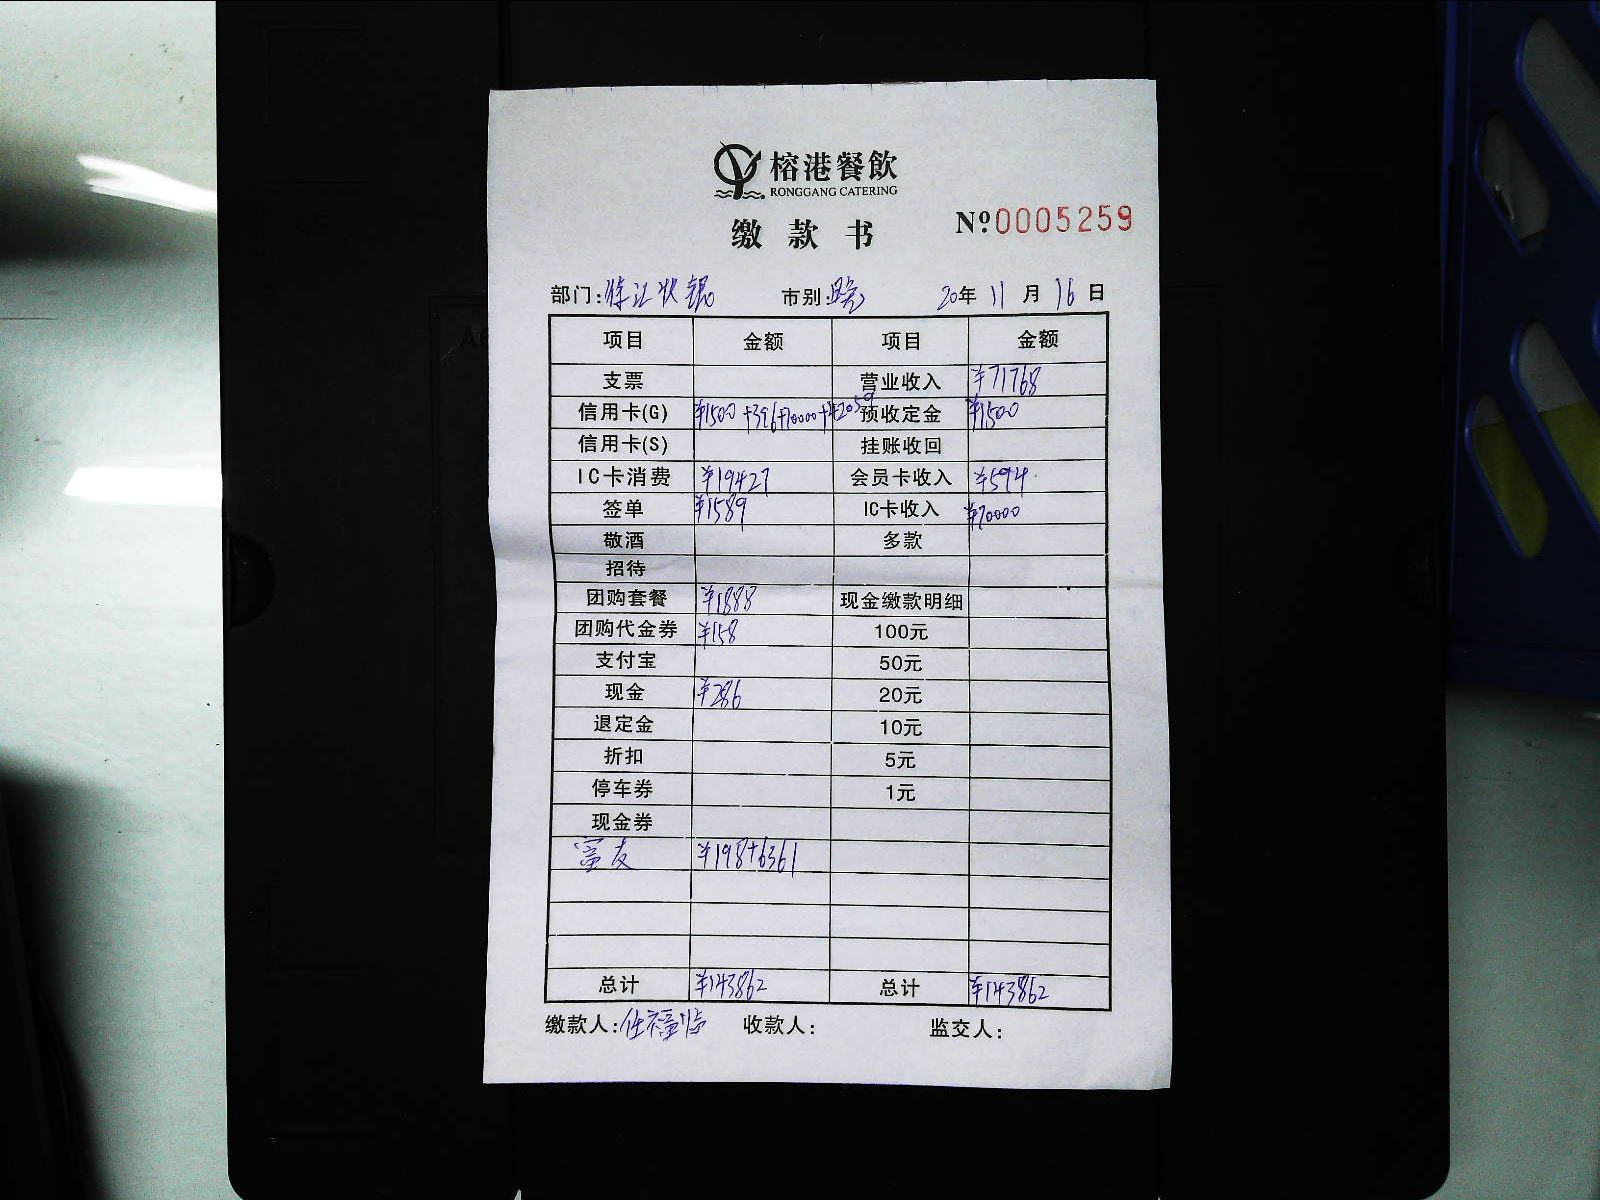 榕港餐飲
RONGGANG CATERING
缴款书
№0005259
部门: 收银 市别: 20年 11月 16日
项目 金额 项目 金额
支票 营业收入 ¥71768
信用卡(G) ¥1500+396+70000+42059 预收定金 ¥1500
信用卡(S) 挂账收回
IC卡消费 ¥19427 会员卡收入 ¥594
签单 ¥1589 IC卡收入 ¥70000
敬酒 多款
招待
团购套餐 ¥1888 现金缴款明细
团购代金券 ¥158 100元
支付宝 50元
现金 ¥286 20元
退定金 10元
折扣 5元
停车券 1元
现金券
富友 ¥198+6361
总计 ¥143862 总计 ¥143862
缴款人: 收款人: 监交人: